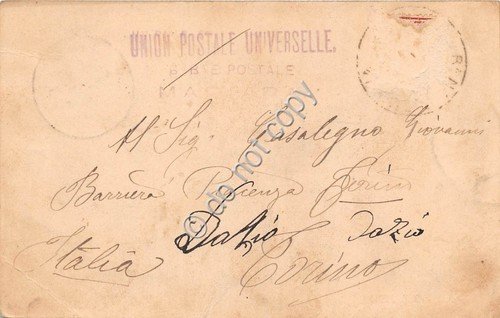 UNION POSTALE UNIVERSELLE.
POSTALE
Al Sig. Casalegno Giovanni
Barriera Piacenza Torino
Dazio Dazio
Italia Torino
© do not copy